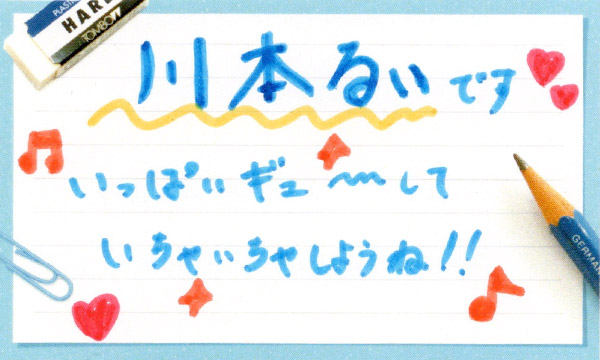 PLASTIC
HARD
TOMBOW
川本るいです
いっぱいギュ〜して
いちゃいちゃしようね!!
GERMAN